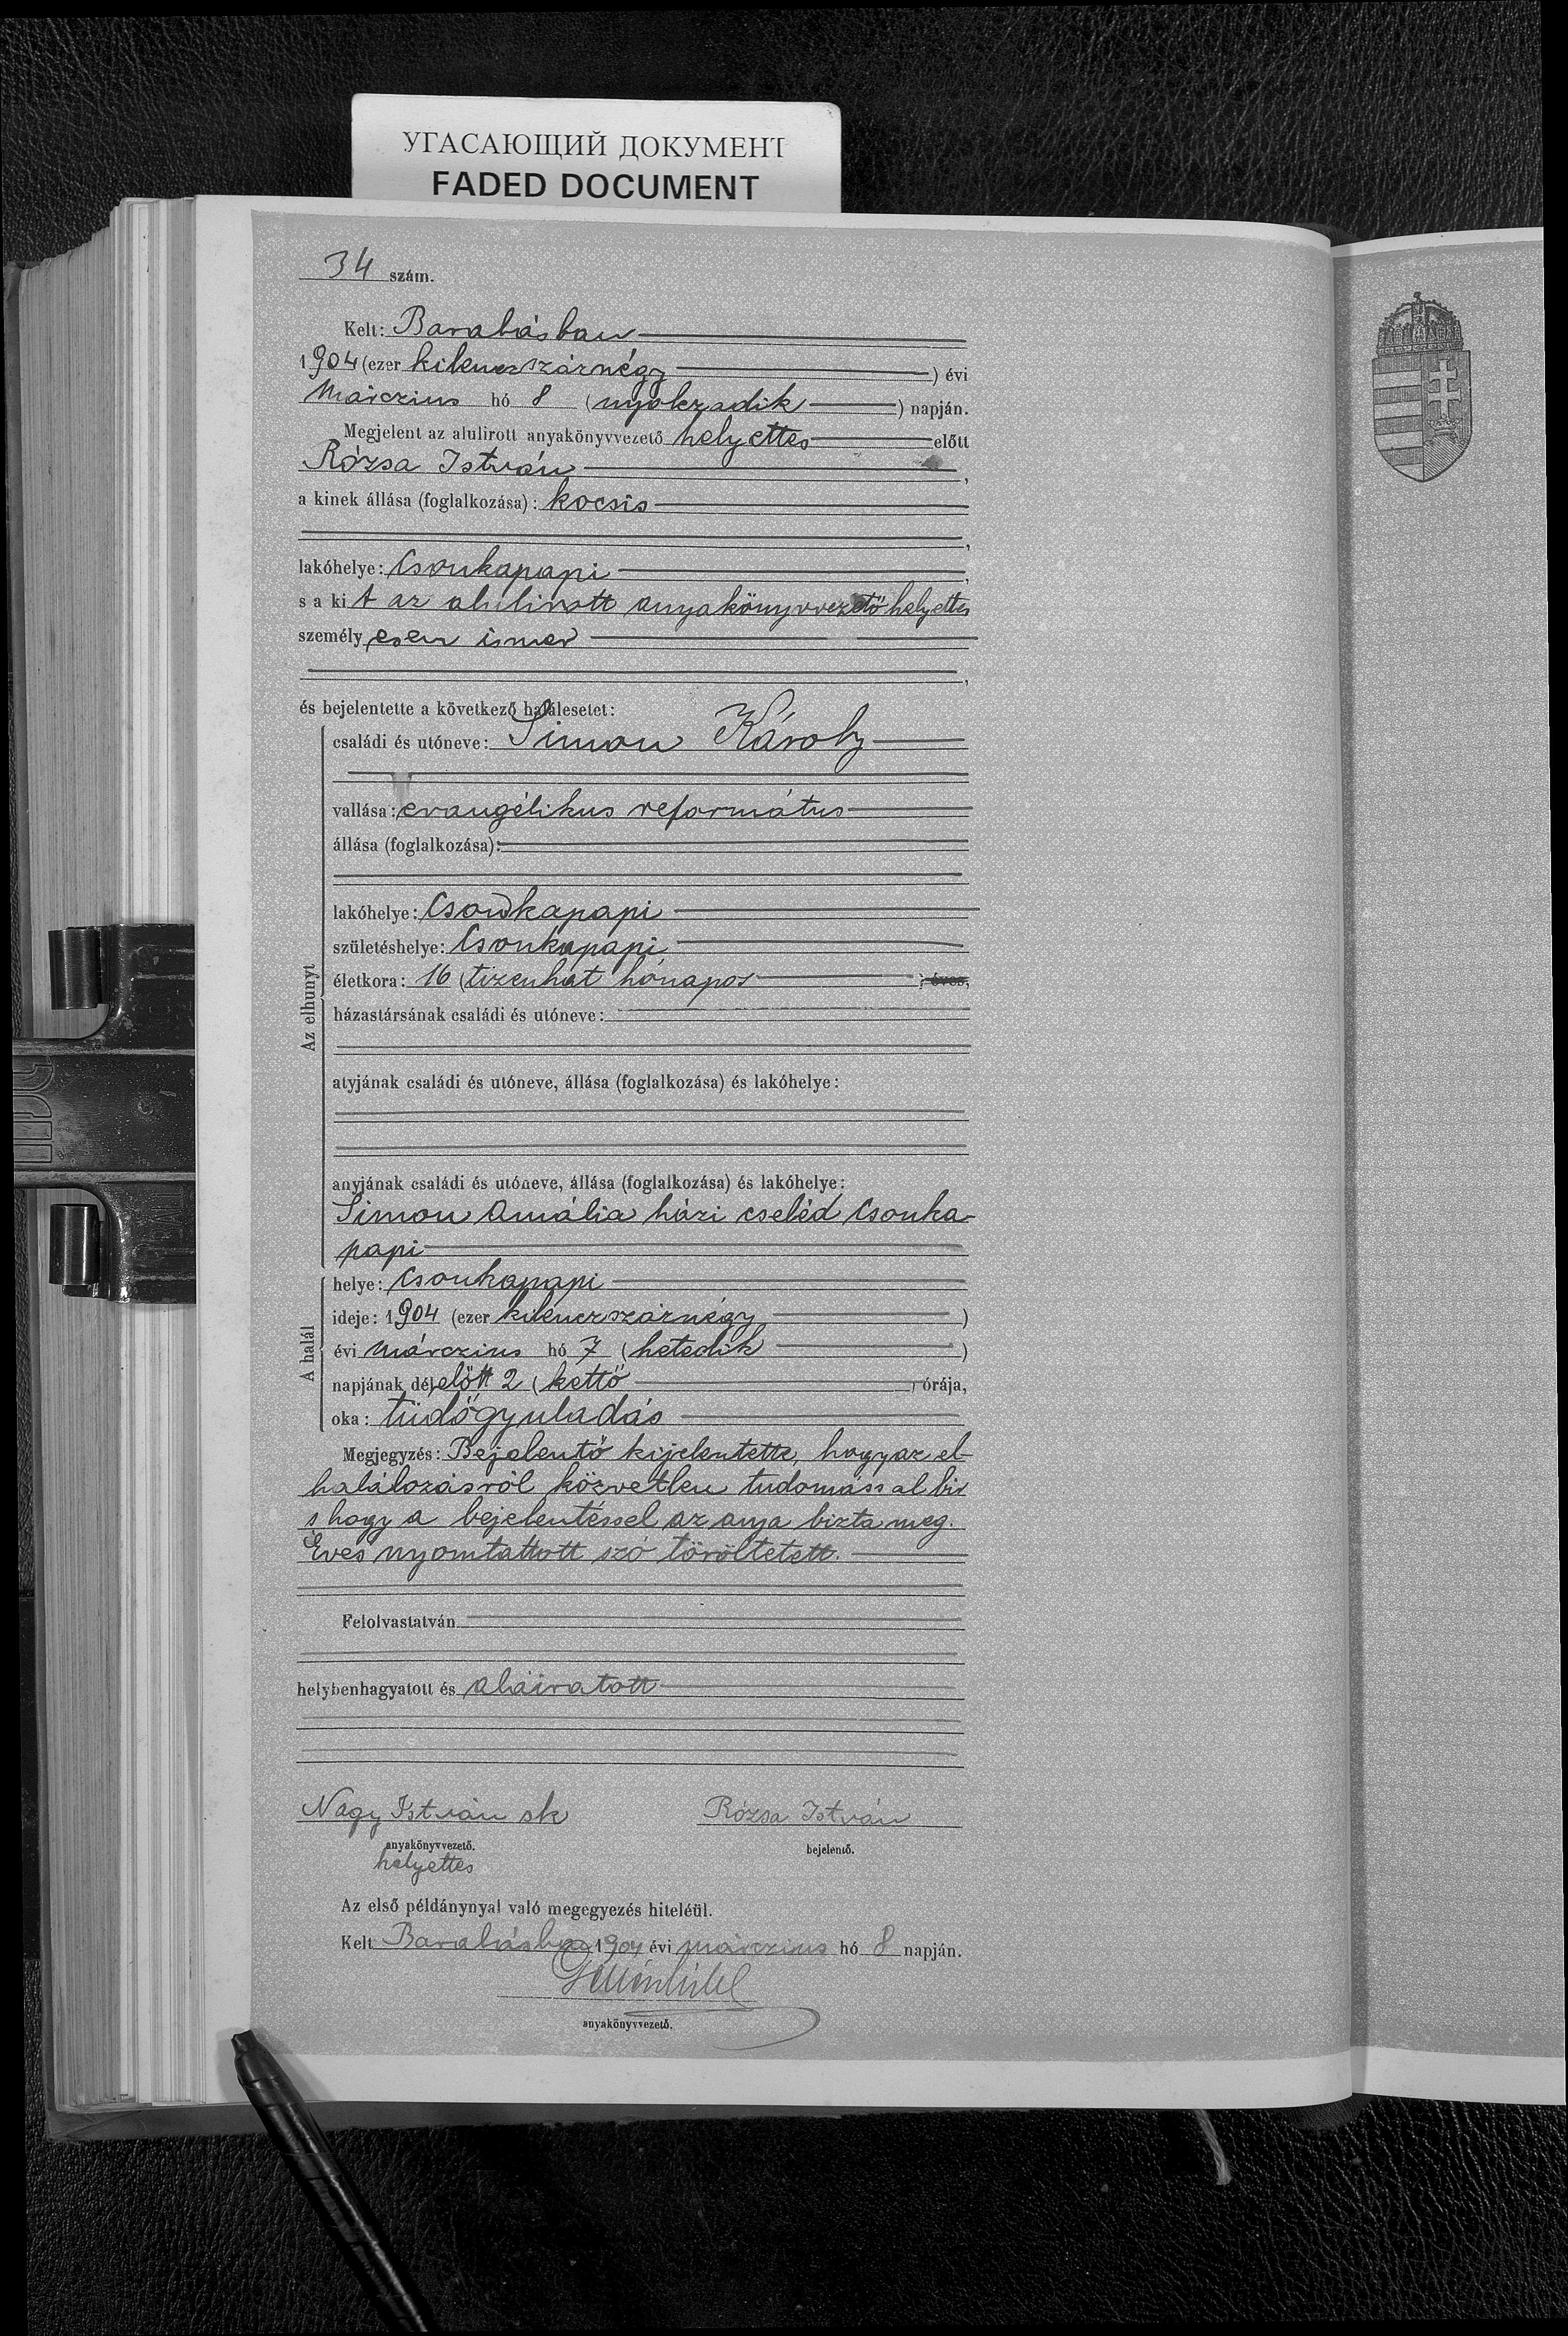 УГАСАЮЩИЙ ДОКУМЕНТ
FADED DOCUMENT
34 szám.
Kelt: Barabásban
1904 (ezer kilenczszáznégy ) évi
márczius hó 8 (nyolczadik ) napján.
Megjelent az alulirott anyakönyvvezető helyettes előtt
Rózsa István ,
a kinek állása (foglalkozása): kocsis
,
lakóhelye: Csonkapapi ,
s a kit az alulirott anyakönyvvezető helyettes
személyesen ismer
,
és bejelentette a következő halálesetet:
Az elhunyt
családi és utóneve: Simon Károly
vallása: evangélikus református
állása (foglalkozása):
lakóhelye: Csonkapapi
születéshelye: Csonkapapi
életkora: 16 (tizenhat hónapos ) éves,
házastársának családi és utóneve:
atyjának családi és utóneve, állása (foglalkozása) és lakóhelye:
anyjának családi és utóneve, állása (foglalkozása) és lakóhelye:
Simon Amália házi cseléd Csonka-
papi
A halál
helye: Csonkapapi
ideje: 1904 (ezer kilenczszáznégy )
évi márczius hó 7 (hetedik )
napjának délelőtt 2 (kettő ) órája,
oka: tüdőgyuladás
Megjegyzés: Bejelentő kijelentette, hogy az el-
halálozásról közvetlen tudomással bir
s hogy a bejelentéssel az anya bizta meg.
Éves nyomtattott szó töröltetett.
Felolvastatván
helybenhagyatott és aláiratott
Nagy István sk Rózsa István
anyakönyvvezető. bejelentő.
helyettes
Az első példánynyal való megegyezés hiteléül.
Kelt Barabásban 1904 évi márczius hó 8 napján.
anyakönyvvezető.